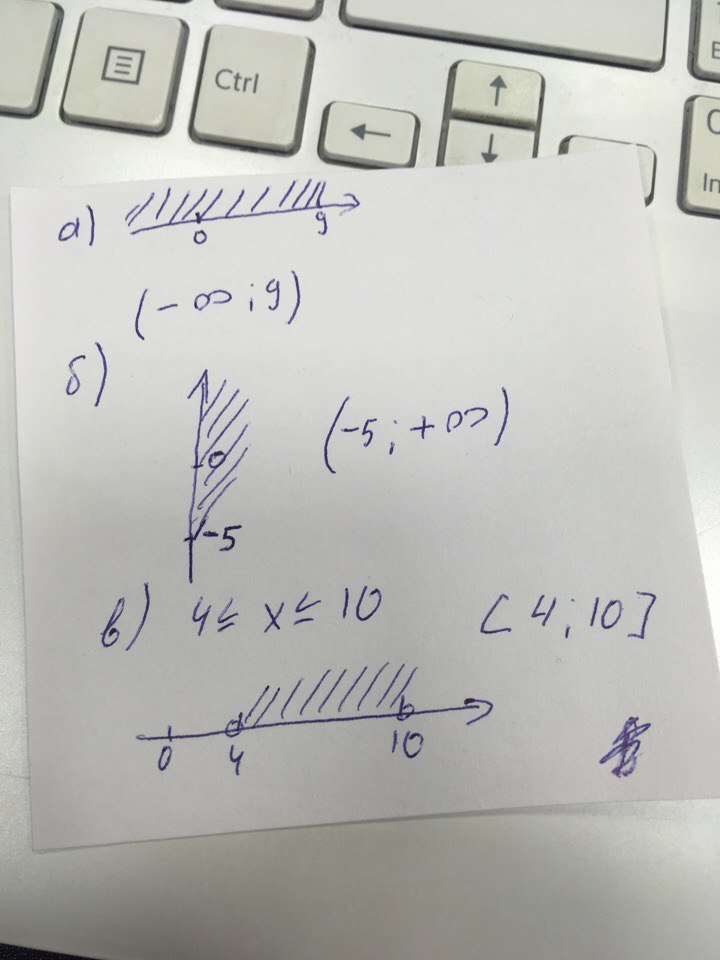 Ctrl
а)
0 9
(-∞; 9)
б)
0
-5
(-5; +∞)
в) 4 ≤ x ≤ 10 [4; 10]
0 4 10